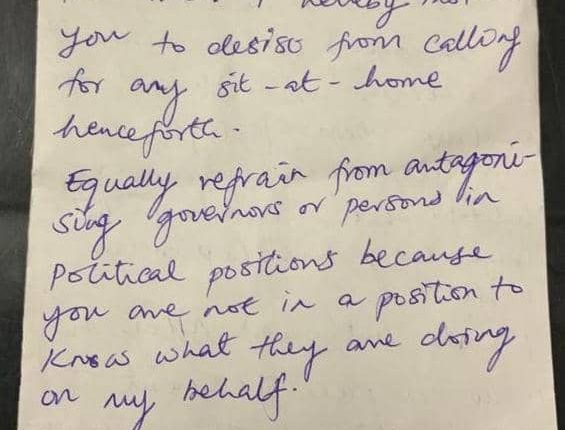 I hereby
you to desist from calling
for any sit-at-home
henceforth.
Equally refrain from antagoni-
sing governors or persons in
political positions because
you are not in a position to
know what they are doing
on my behalf.